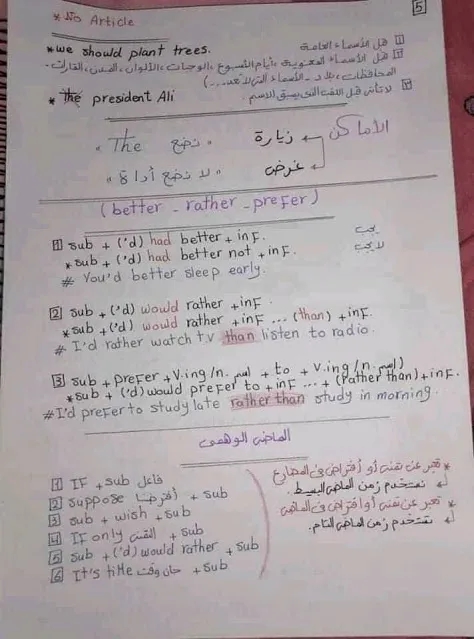 5
* No Article
* we should plant trees.
1 قبل الأسماء العامة
2 قبل الأسماء المعنوية، أيام الأسبوع، الوجبات، الألوان، المدن، القارات،
المحافظات، بلاد - الأسماء التى لا تعد...)
* the president Ali
3 لا تأتى قبل اللقب الذى يسبق الاسم.
الأماكن
زيارة « نضع The »
غرض « لا نضع أداة »
(better - rather - prefer)
1 sub + ('d) had better + inf. يجب
* sub + ('d) had better not + inf. لا يجب
# You'd better sleep early.
2 sub + ('d) would rather + inf.
* sub + ('d) would rather + inf ... (than) + inf.
# I'd rather watch tv than listen to radio.
3 sub + prefer + v.ing/n. اسم + to + v.ing/n. اسم
* sub + ('d) would prefer to + inf ... + (rather than) + inf.
# I'd prefer to study late rather than study in morning.
الماضى الوهمى
1 IF + sub فاعل
2 suppose أفترضا + sub
3 sub + wish + sub
4 IF only التمنى + sub
5 sub + ('d) would rather + sub
6 It's time حان وقت + sub
* تعبر عن تمنى أو أفتراض فى المضارع
نستخدم زمن الماضى البسيط.
* تعبر عن تمنى أو افتراض فى الماضى
نستخدم زمن الماضى التام.